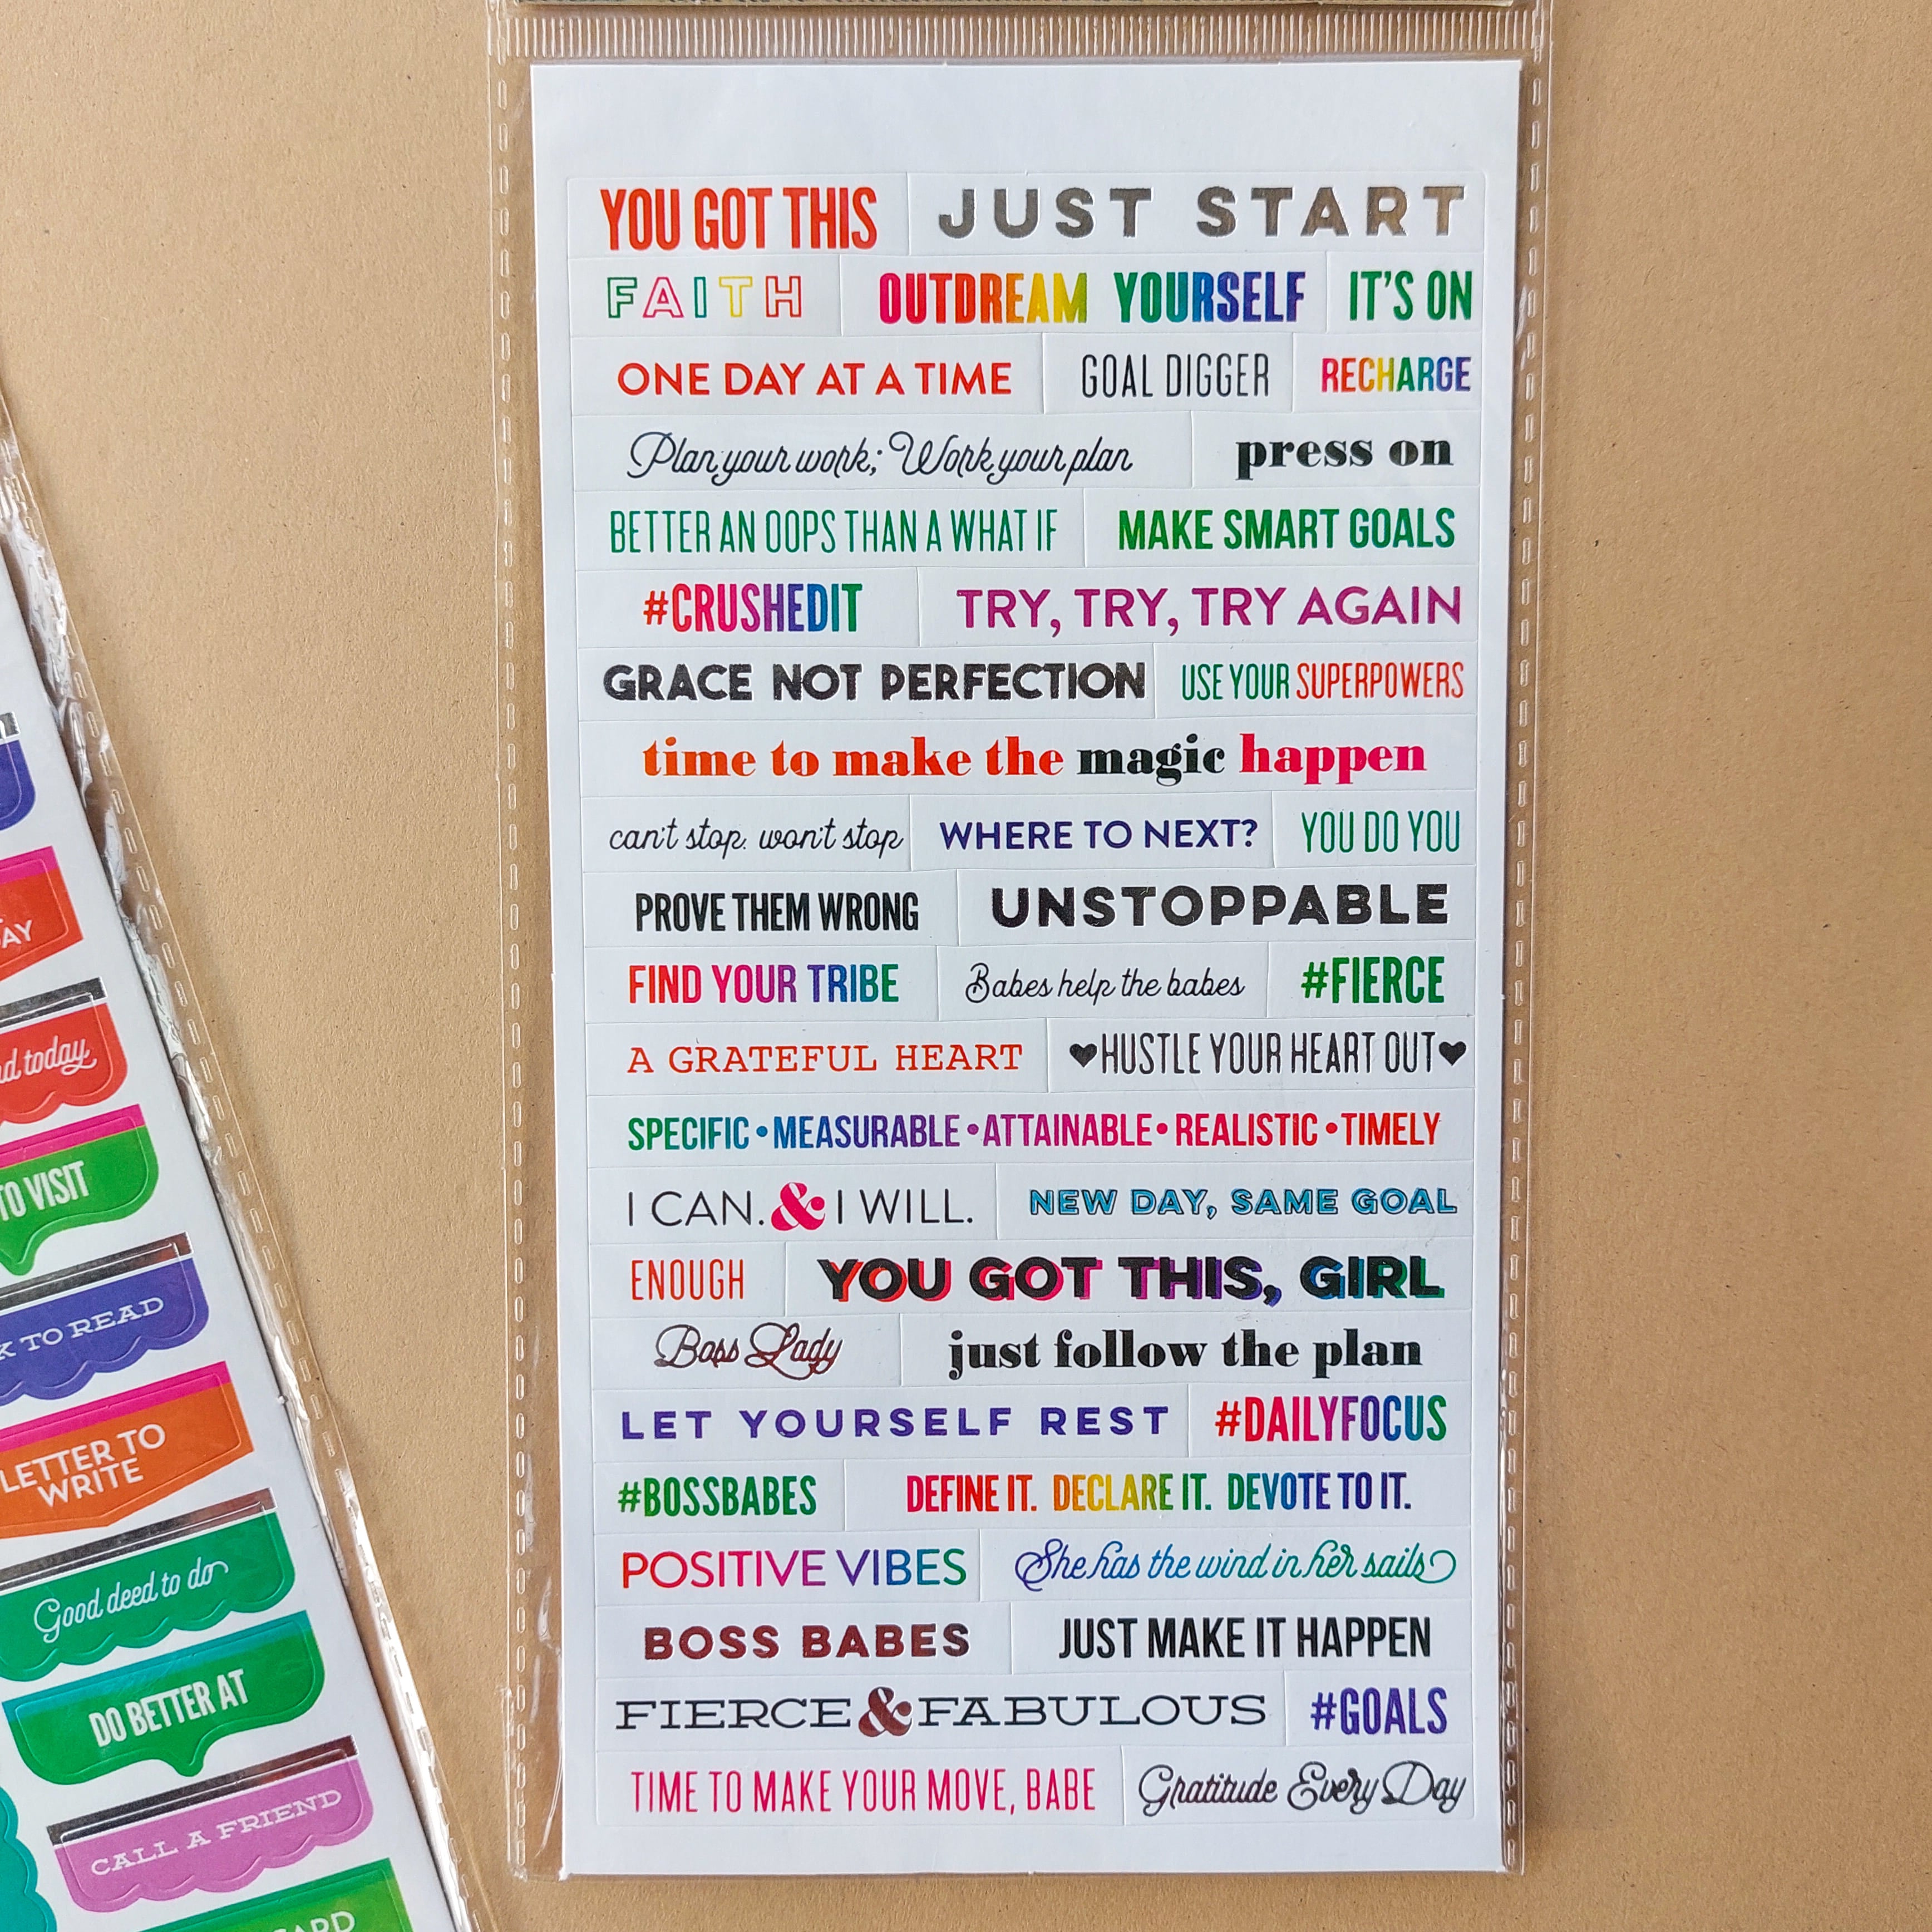 YOU GOT THIS JUST START
FAITH OUTDREAM YOURSELF IT'S ON
ONE DAY AT A TIME GOAL DIGGER RECHARGE
Plan your work; Work your plan press on
BETTER AN OOPS THAN A WHAT IF MAKE SMART GOALS
#CRUSHEDIT TRY, TRY, TRY AGAIN
GRACE NOT PERFECTION USE YOUR SUPERPOWERS
time to make the magic happen
can't stop. won't stop WHERE TO NEXT? YOU DO YOU
PROVE THEM WRONG UNSTOPPABLE
FIND YOUR TRIBE Babes help the babes #FIERCE
A GRATEFUL HEART ♥HUSTLE YOUR HEART OUT♥
SPECIFIC•MEASURABLE•ATTAINABLE•REALISTIC•TIMELY
I CAN.&I WILL. NEW DAY, SAME GOAL
ENOUGH YOU GOT THIS, GIRL
Boss Lady just follow the plan
LET YOURSELF REST #DAILYFOCUS
#BOSSBABES DEFINE IT. DECLARE IT. DEVOTE TO IT.
POSITIVE VIBES She has the wind in her sails
BOSS BABES JUST MAKE IT HAPPEN
FIERCE&FABULOUS #GOALS
TIME TO MAKE YOUR MOVE, BABE Gratitude Every Day
today
TO VISIT
TO READ
LETTER TO
WRITE
Good deed to do
DO BETTER AT
CALL A FRIEND